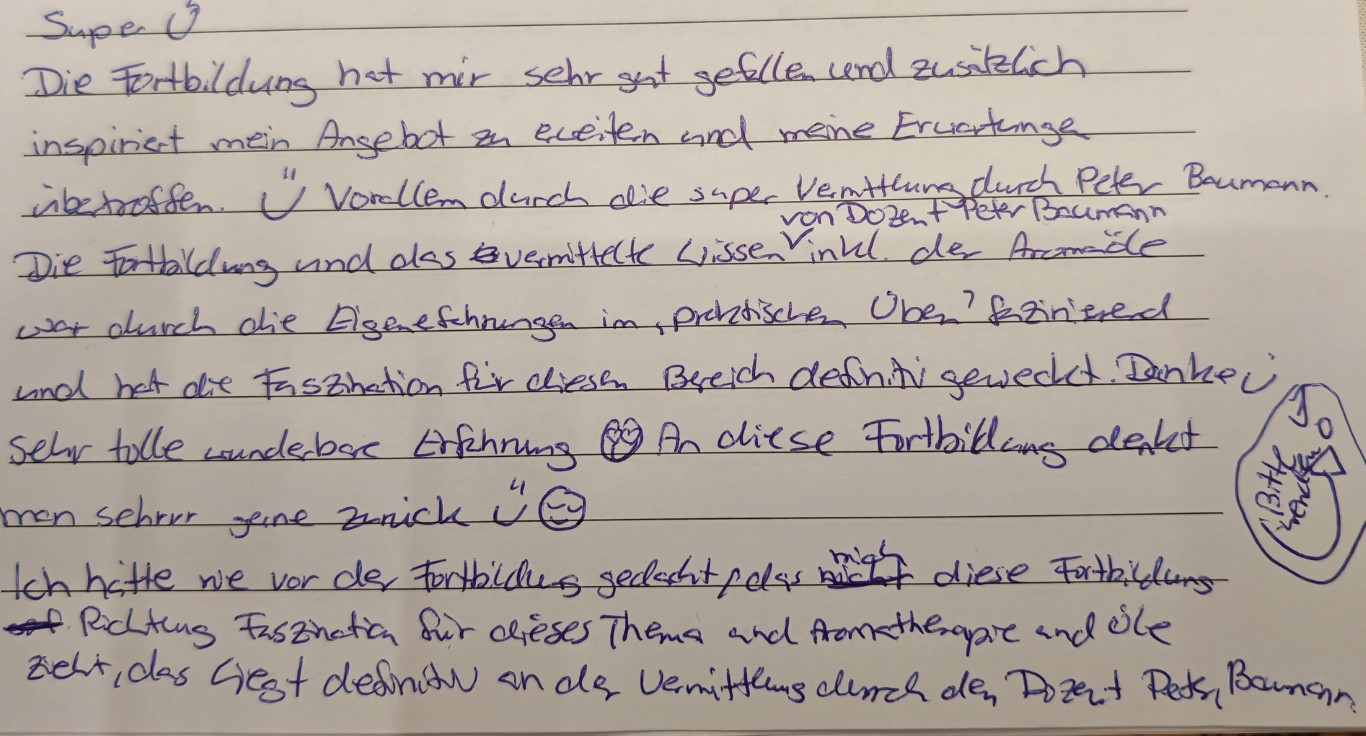 Super Ü
Die Fortbildung hat mir sehr gut gefallen und zusätzlich
inspiriert mein Angebot zu erweitern und meine Erwartunge
übertroffen. Ü Vorallem durch die super Vermittlung durch Peter Baumann.
von Dozent Peter Baumann
Die Fortbildung und das vermittelte Wissen inkl. der Aromaöle
war durch die Eigenefahrungen im "praktischen Üben" faszinierend
und hat die Faszination für diesen Bereich definitiv geweckt. Danke Ü
sehr tolle wunderbare Erfahrung An diese Fortbildung denkt
man sehrrr gerne zurück Ü
(Bitte wenden)
Ich hätte nie vor der Fortbildung gedacht, das mich diese Fortbildung
Richtung Faszination für dieses Thema und Aromatherapie und Öle
zieht, das liegt definitiv an der Vermittlung durch den Dozent Peter Baumann